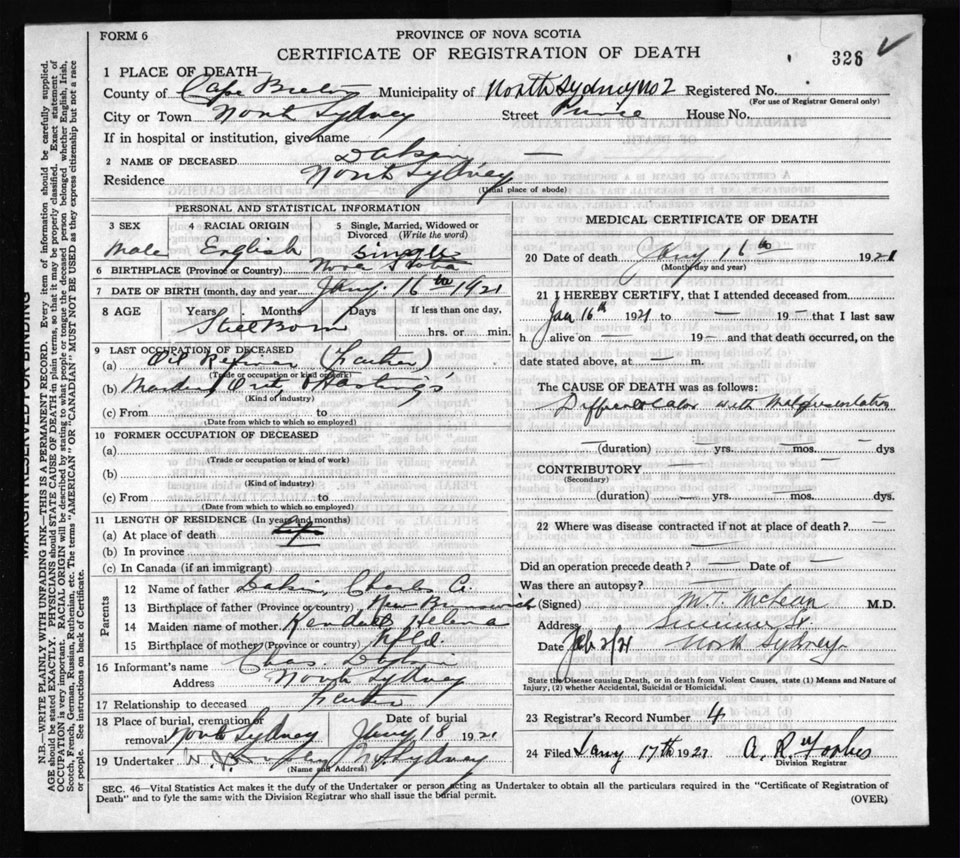 FORM 6
PROVINCE OF NOVA SCOTIA
CERTIFICATE OF REGISTRATION OF DEATH
326 ✓
1 PLACE OF DEATH—
County of Cape Breton Municipality of North Sydney No 2 Registered No.
(For use of Registrar General only)
City or Town North Sydney Street Prince House No.
If in hospital or institution, give name
2 NAME OF DECEASED Dakin —
Residence North Sydney
(Usual place of abode)
PERSONAL AND STATISTICAL INFORMATION
3 SEX 4 RACIAL ORIGIN 5 Single, Married, Widowed or Divorced (Write the word)
Male English Single
6 BIRTHPLACE (Province or Country) Nova Scotia
7 DATE OF BIRTH (month, day and year) Jany. 16th 1921
8 AGE Years Months Days If less than one day,
Still Born hrs. or min.
9 LAST OCCUPATION OF DECEASED
(a) Oil Refiner (Father)
(Trade or occupation or kind of work)
(b)
(Kind of industry)
(c) From to
(Date from which to which so employed)
10 FORMER OCCUPATION OF DECEASED
(a)
(Trade or occupation or kind of work)
(b)
(Kind of industry)
(c) From to
(Date from which to which so employed)
11 LENGTH OF RESIDENCE (In years and months)
(a) At place of death
(b) In province
(c) In Canada (if an immigrant)
Parents
12 Name of father Dakin, Charles A.
13 Birthplace of father (Province or country) New Brunswick
14 Maiden name of mother Kendall Helena
15 Birthplace of mother (Province or country) Nfld.
16 Informant's name Chas. Dakin
Address North Sydney
17 Relationship to deceased Father
18 Place of burial, cremation or removal North Sydney Date of burial Jany 18 1921
19 Undertaker N. Sydney
(Name and Address)
MEDICAL CERTIFICATE OF DEATH
20 Date of death Jany 16th 1921
(Month day and year)
21 I HEREBY CERTIFY, that I attended deceased from
Jan 16th 1921 to — 19 — that I last saw
h alive on — 19 — and that death occurred, on the
date stated above, at — m.
The CAUSE OF DEATH was as follows:
Difficult labor with Malpresentation
(duration) yrs. mos. dys
CONTRIBUTORY
(Secondary)
(duration) yrs. mos. dys.
22 Where was disease contracted if not at place of death?
Did an operation precede death? — Date of —
Was there an autopsy? —
(Signed) M.T. McLean M.D.
Address Summer St.
Date Feb 2/21 North Sydney
State the Disease causing Death, or in death from Violent Causes, state (1) Means and Nature of
Injury, (2) whether Accidental, Suicidal or Homicidal.
23 Registrar's Record Number 4
24 Filed Jany 17th 1921 A. R. Forbes
Division Registrar
SEC. 46—Vital Statistics Act makes it the duty of the Undertaker or person acting as Undertaker to obtain all the particulars required in the "Certificate of Registration of
Death" and to fyle the same with the Division Registrar who shall issue the burial permit.
(OVER)
MARGIN RESERVED FOR BINDING
N.B.—WRITE PLAINLY WITH UNFADING INK—THIS IS A PERMANENT RECORD. Every item of information should be carefully supplied.
AGE should be stated EXACTLY. PHYSICIANS should STATE CAUSE OF DEATH in plain terms, so that it may be properly classified. Exact statement of
OCCUPATION is very important. RACIAL ORIGIN will be described by stating to what people or tongue the deceased person belonged, whether English, Irish,
Scotch, French, German, Russian, Ruthenian, etc. The terms "AMERICAN" or "CANADIAN" MUST NOT BE USED as they express citizenship but not a race
or people. See instructions on back of Certificate.